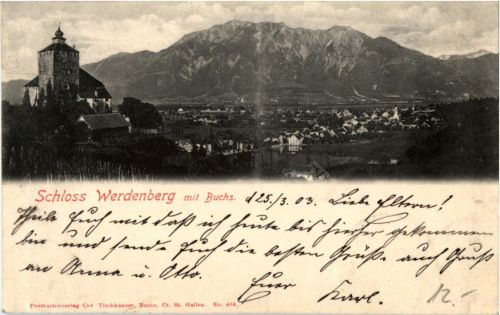 Schloss Werdenberg mit Buchs. d 25./3. 03. Liebe Eltern!
Theile Euch mit daß ich heute bis hierher gekommen
bin und sende Euch die besten Grüße auch Gruß
an Anna u. Otto. Euer Karl. 12.-
Postkartenverlag Cor. Tischhauser, Buchs, Ct. St. Gallen. No. 486.